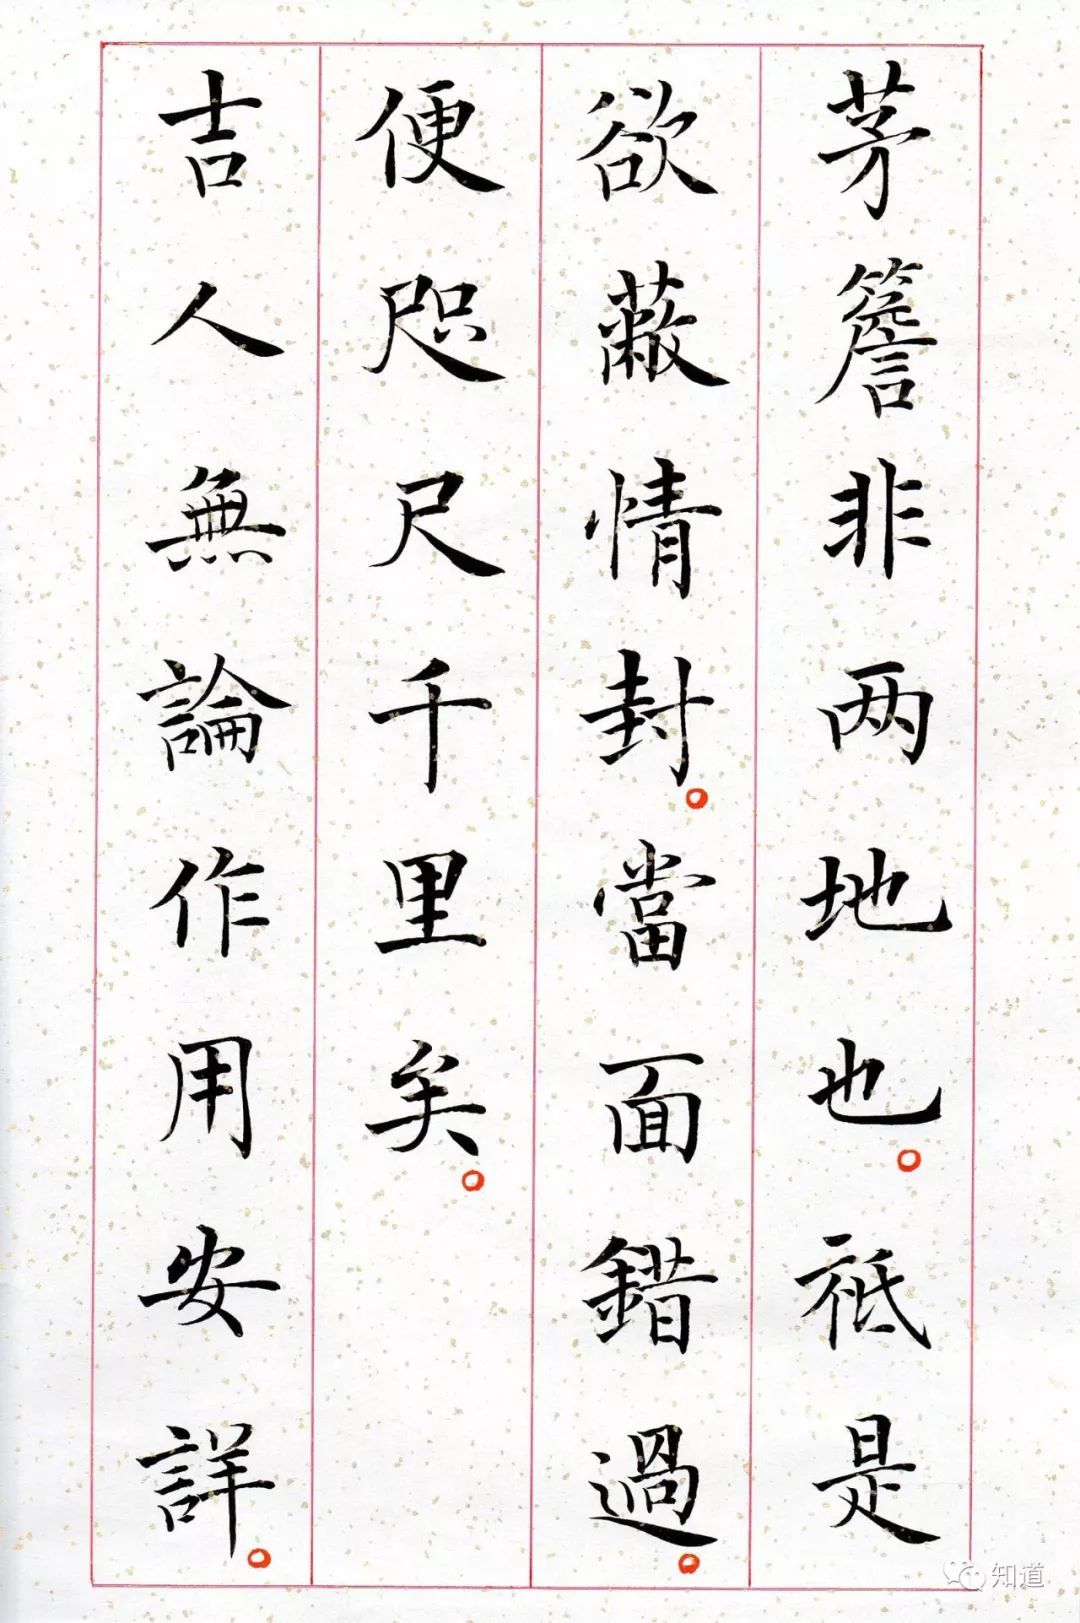 茅簷非两地也。祗是
欲蔽情封。當面錯過。
便咫尺千里矣。
吉人無論作用安詳。
知道